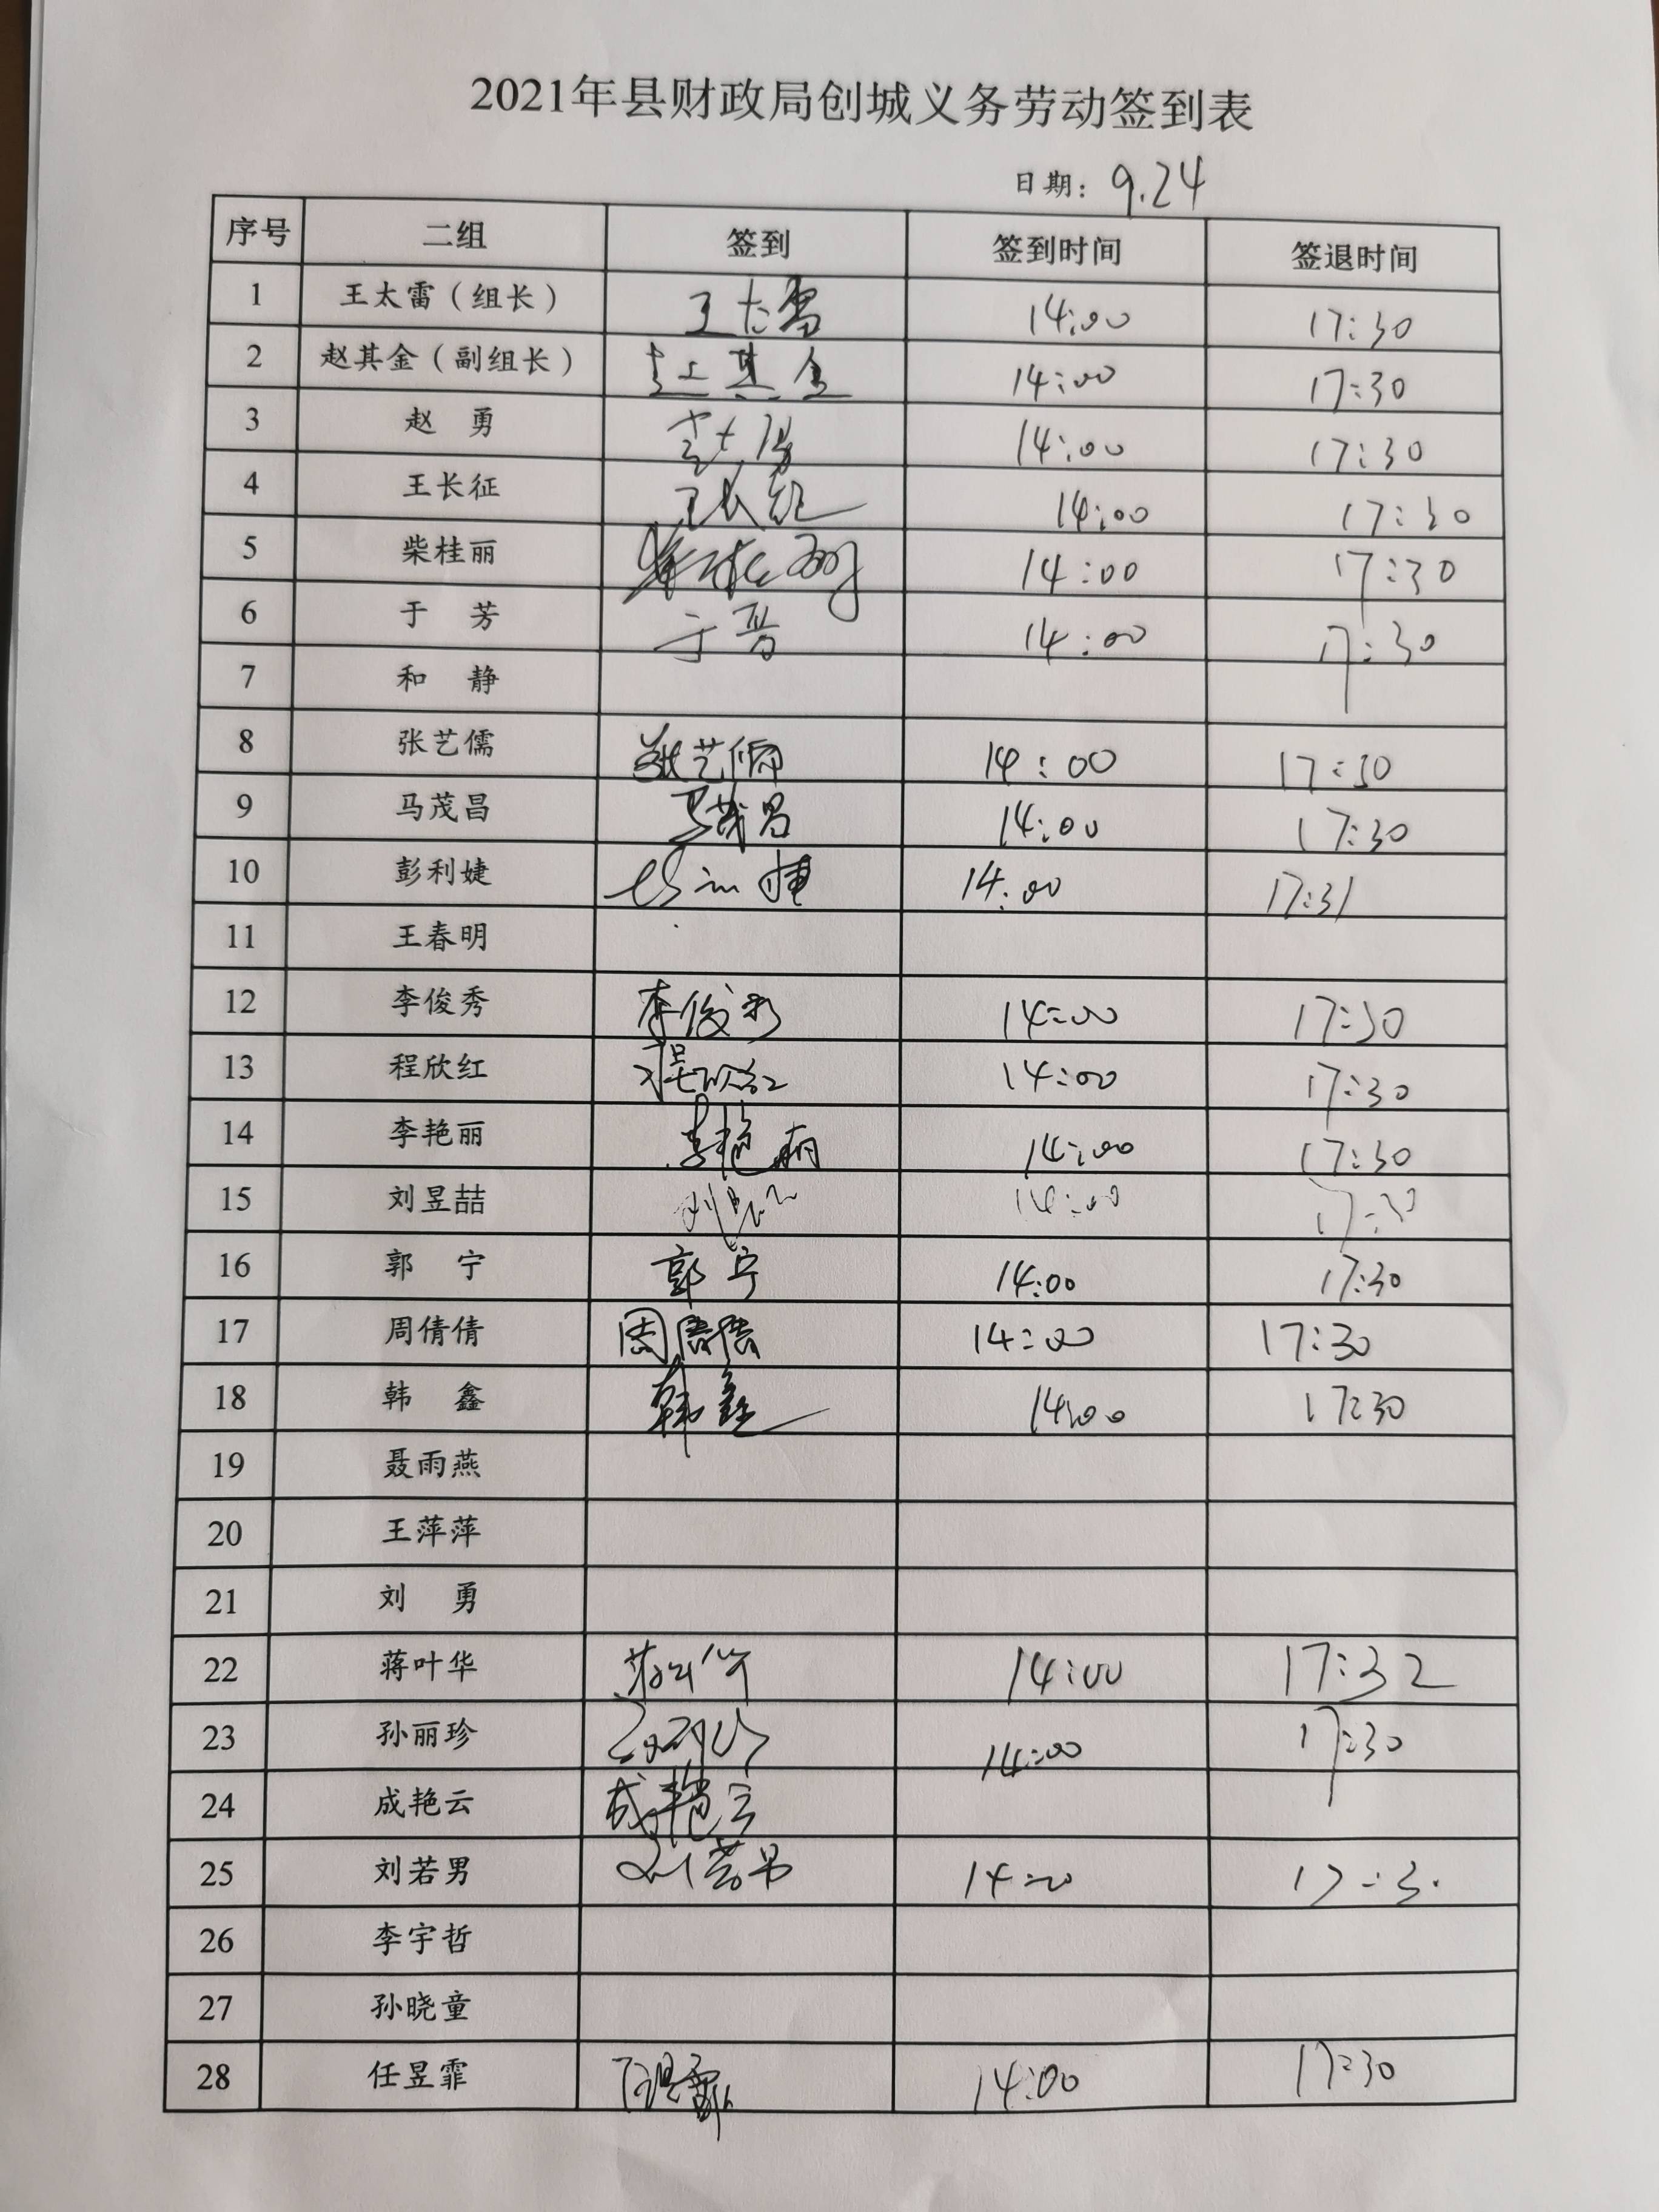 2021年县财政局创城义务劳动签到表
日期：9.24
序号 二组 签到 签到时间 签退时间
1 王太雷（组长） 王太雷 14:00 17:30
2 赵其金（副组长） 赵其金 14:00 17:30
3 赵 勇 赵勇 14:00 17:30
4 王长征 王长征 14:00 17:30
5 柴桂丽 柴桂丽 14:00 17:30
6 于 芳 于芳 14:00 17:30
7 和 静
8 张艺儒 张艺儒 14:00 17:30
9 马茂昌 马茂昌 14:00 17:30
10 彭利婕 14:00 17:31
11 王春明
12 李俊秀 李俊秀 14:00 17:30
13 程欣红 程欣红 14:00 17:30
14 李艳丽 李艳丽 14:00 17:30
15 刘昱喆 14:00 17:30
16 郭 宁 郭宁 14:00 17:30
17 周倩倩 周倩倩 14:00 17:30
18 韩 鑫 韩鑫 14:00 17:30
19 聂雨燕
20 王萍萍
21 刘 勇
22 蒋叶华 蒋叶华 14:00 17:32
23 孙丽珍 孙丽珍 14:00 17:30
24 成艳云 成艳云
25 刘若男 刘若男 14:00 17:30
26 李宇哲
27 孙晓童
28 任昱霏 任昱霏 14:00 17:30